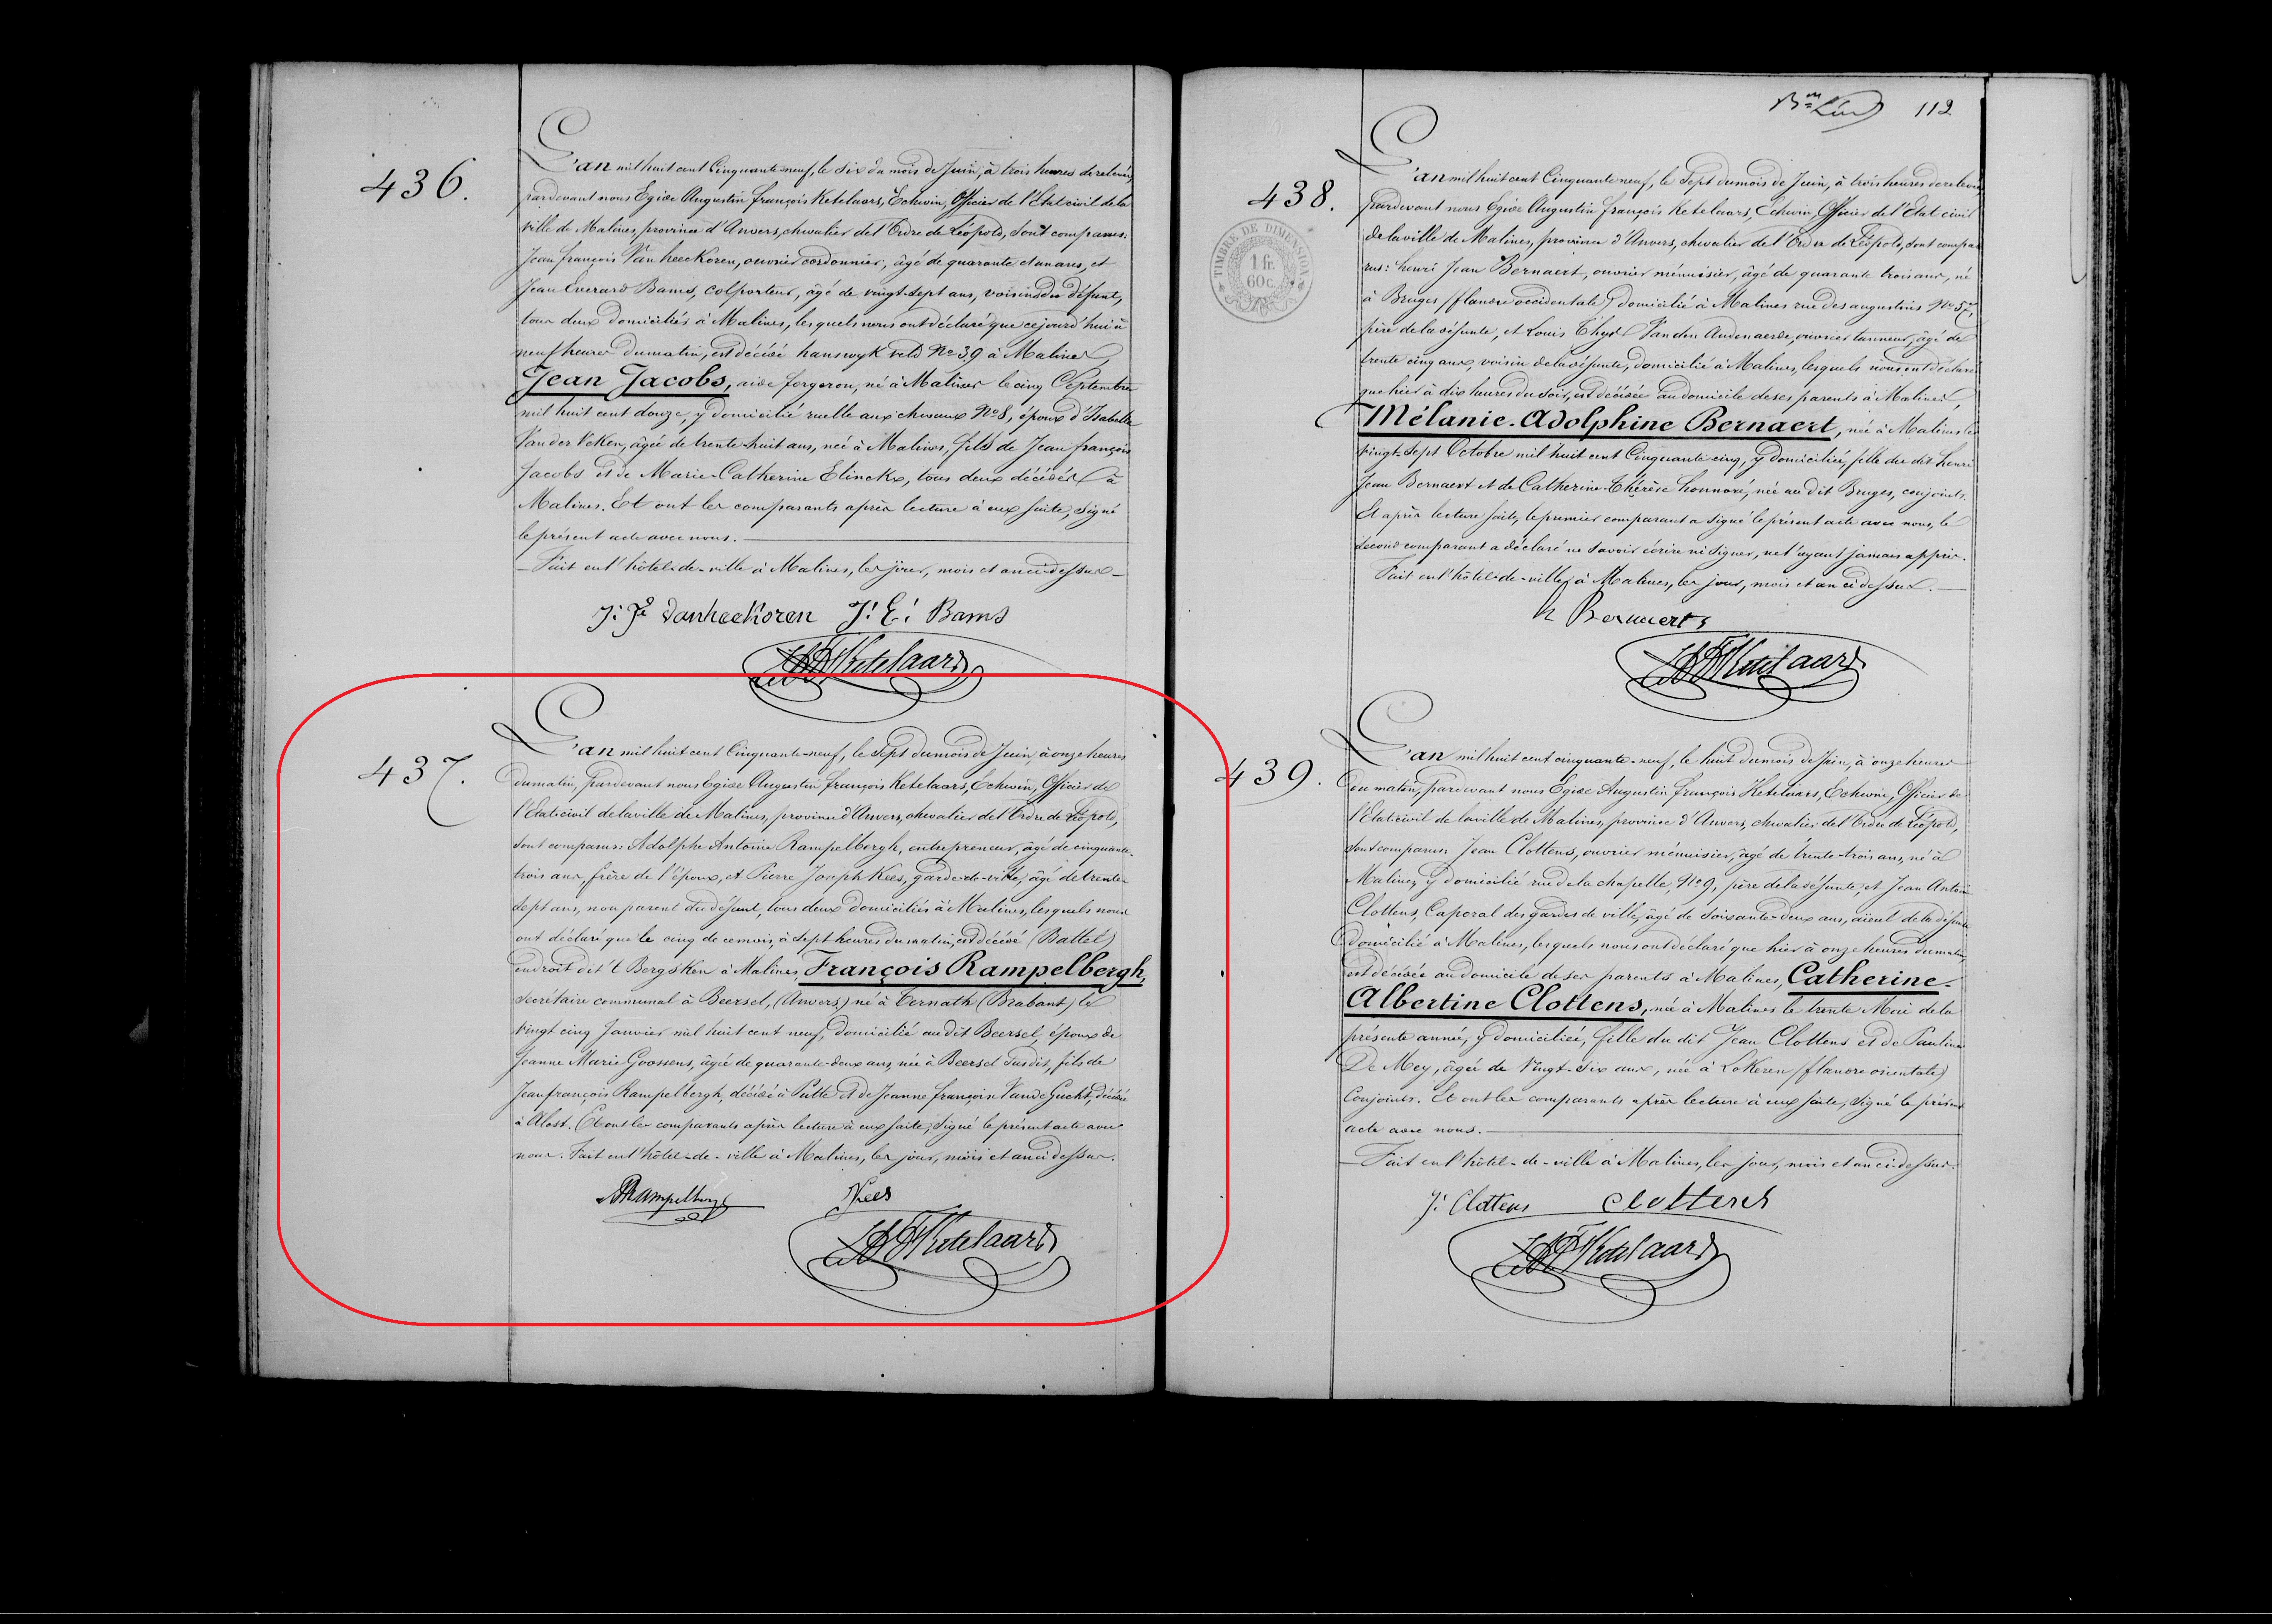 436.
L'an mil huit cent Cinquante-neuf, le six du mois de Juin, à trois heures de relevée,
pardevant nous Egide Augustin françois Ketelaars, Echevin, Officier de l'Etat civil de la
ville de Malines, province d'Anvers, chevalier de l'Ordre de Léopold, sont comparus:
Jean françois Van heeckoren, ouvrier cordonnier, âgé de quarante et un ans, et
Jean Everard Bams, colporteur, âgé de vingt-sept ans, voisins du défunt,
tous deux domiciliés à Malines, lesquels nous ont déclaré que cejourd'hui à
neuf heures du matin, est décédé hanswyk veld No 39 à Malines,
Jean Jacobs, aide forgeron, né à Malines le cinq Septembre
mil huit cent douze, y domicilié ruelle aux chevaux No 8, époux d'Isabelle
Van der Veken, âgée de trente-huit ans, née à Malines, fils de Jean françois
Jacobs et de Marie-Catherine Elinckx, tous deux décédés à
Malines. Et ont les comparants après lecture à eux faite, signé
le présent acte avec nous.
Fait en l'hôtel-de-ville à Malines, les jour, mois et an ci-dessus
J: F. Vanheekoren J: E: Bams
Ketelaars
437.
L'an mil huit cent Cinquante-neuf, le Sept du mois de Juin, à onze heures
du matin, pardevant nous Egide Augustin françois Ketelaars, Echevin, Officier de
l'Etat civil de la ville de Malines, province d'Anvers, chevalier de l'Ordre de Léopold,
sont comparus: Adolphe Antoine Rampelbergh, entrepreneur, âgé de cinquante-
trois ans, frère de l'époux, et Pierre Joseph Kees, garde-de-ville, âgé de trente-
sept ans, non parent du défunt, tous deux domiciliés à Malines, lesquels nous
ont déclaré que le cinq de ce mois, à Sept heures du matin, est décédé (Battel)
endroit dit 't Bergsken à Malines, François Rampelbergh,
Secrétaire communal à Beersel, (Anvers) né à Ternath (Brabant) le
vingt cinq Janvier mil huit cent neuf, domicilié au dit Beersel, époux de
Jeanne Marie Goossens, âgée de quarante-deux ans, née à Beersel susdit, fils de
Jean françois Rampelbergh, décédé à Putte et de Jeanne françoise Vande Gucht, décédée
à Alost. Et ont les comparants après lecture à eux faite, signé le présent acte avec
nous. Fait en l'hôtel-de-ville à Malines, les jour, mois et an ci dessus.
Rampelbergh Kees
Ketelaars
112
438.
TIMBRE DE DIMENSION
1 fr.
60 c.
L'an mil huit cent Cinquante neuf, le Sept du mois de Juin, à trois heures de relevée
pardevant nous Egide Augustin françois Ketelaars, Echevin, Officier de l'Etat civil
de la ville de Malines, province d'Anvers, chevalier de l'Ordre de Léopold, sont compa
rus: henri Jean Bernaert, ouvrier ménuisier, âgé de quarante trois ans, né
à Bruges (flandre occidentale) domicilié à Malines rue des augustins No 57,
père de la défunte, et Louis Van den Audenaerde, ouvrier tanneur, âgé de
trente cinq ans, voisin de la défunte, domicilié à Malines, lesquels nous ont déclaré
que hier à dix heures du soir, est décédée au domicile de ses parents à Malines,
Mélanie-Adolphine Bernaert, née à Malines le
vingt-sept Octobre mil huit cent Cinquante cinq, y domiciliée, fille du dit henri
Jean Bernaert et de Catherine-Thérèse honnoré, née au dit Bruges, conjoints.
Et après lecture faite, le premier comparant a signé le présent acte avec nous, le
second comparant a déclaré ne savoir écrire ni signer, ne l'ayant jamais appris.
Fait en l'hôtel-de-ville à Malines, les jour, mois et an ci dessus.
h Bernaerts
Ketelaars
439.
L'an mil huit cent cinquante-neuf, le huit du mois de Juin, à onze heures
du matin, pardevant nous Egide Augustin françois Ketelaars, Echevin, Officier de
l'Etat civil de la ville de Malines, province d'Anvers, chevalier de l'Ordre de Léopold,
sont comparus Jean Clottens, ouvrier ménuisier, âgé de trente-trois ans, né à
Malines, y domicilié rue de la chapelle, No 9, père de la défunte, et Jean Antoine
Clottens, Caporal des gardes de ville, âgé de soixante-deux ans, aïeul de la défunte
domicilié à Malines, lesquels nous ont déclaré que hier à onze heures du matin,
est décédée au domicile de ses parents à Malines, Catherine-
Albertine Clottens, née à Malines le trente Mai de la
présente année, y domiciliée, fille du dit Jean Clottens et de Pauline
De Mey, âgée de Vingt-Six ans, née à Lokeren (flandre orientale)
Conjoints. Et ont les comparants après lecture à eux faite, signé le présent
acte avec nous.
Fait en l'hôtel-de-ville à Malines, les jour, mois et an ci dessus.
J: Clottens Clottens
Ketelaars